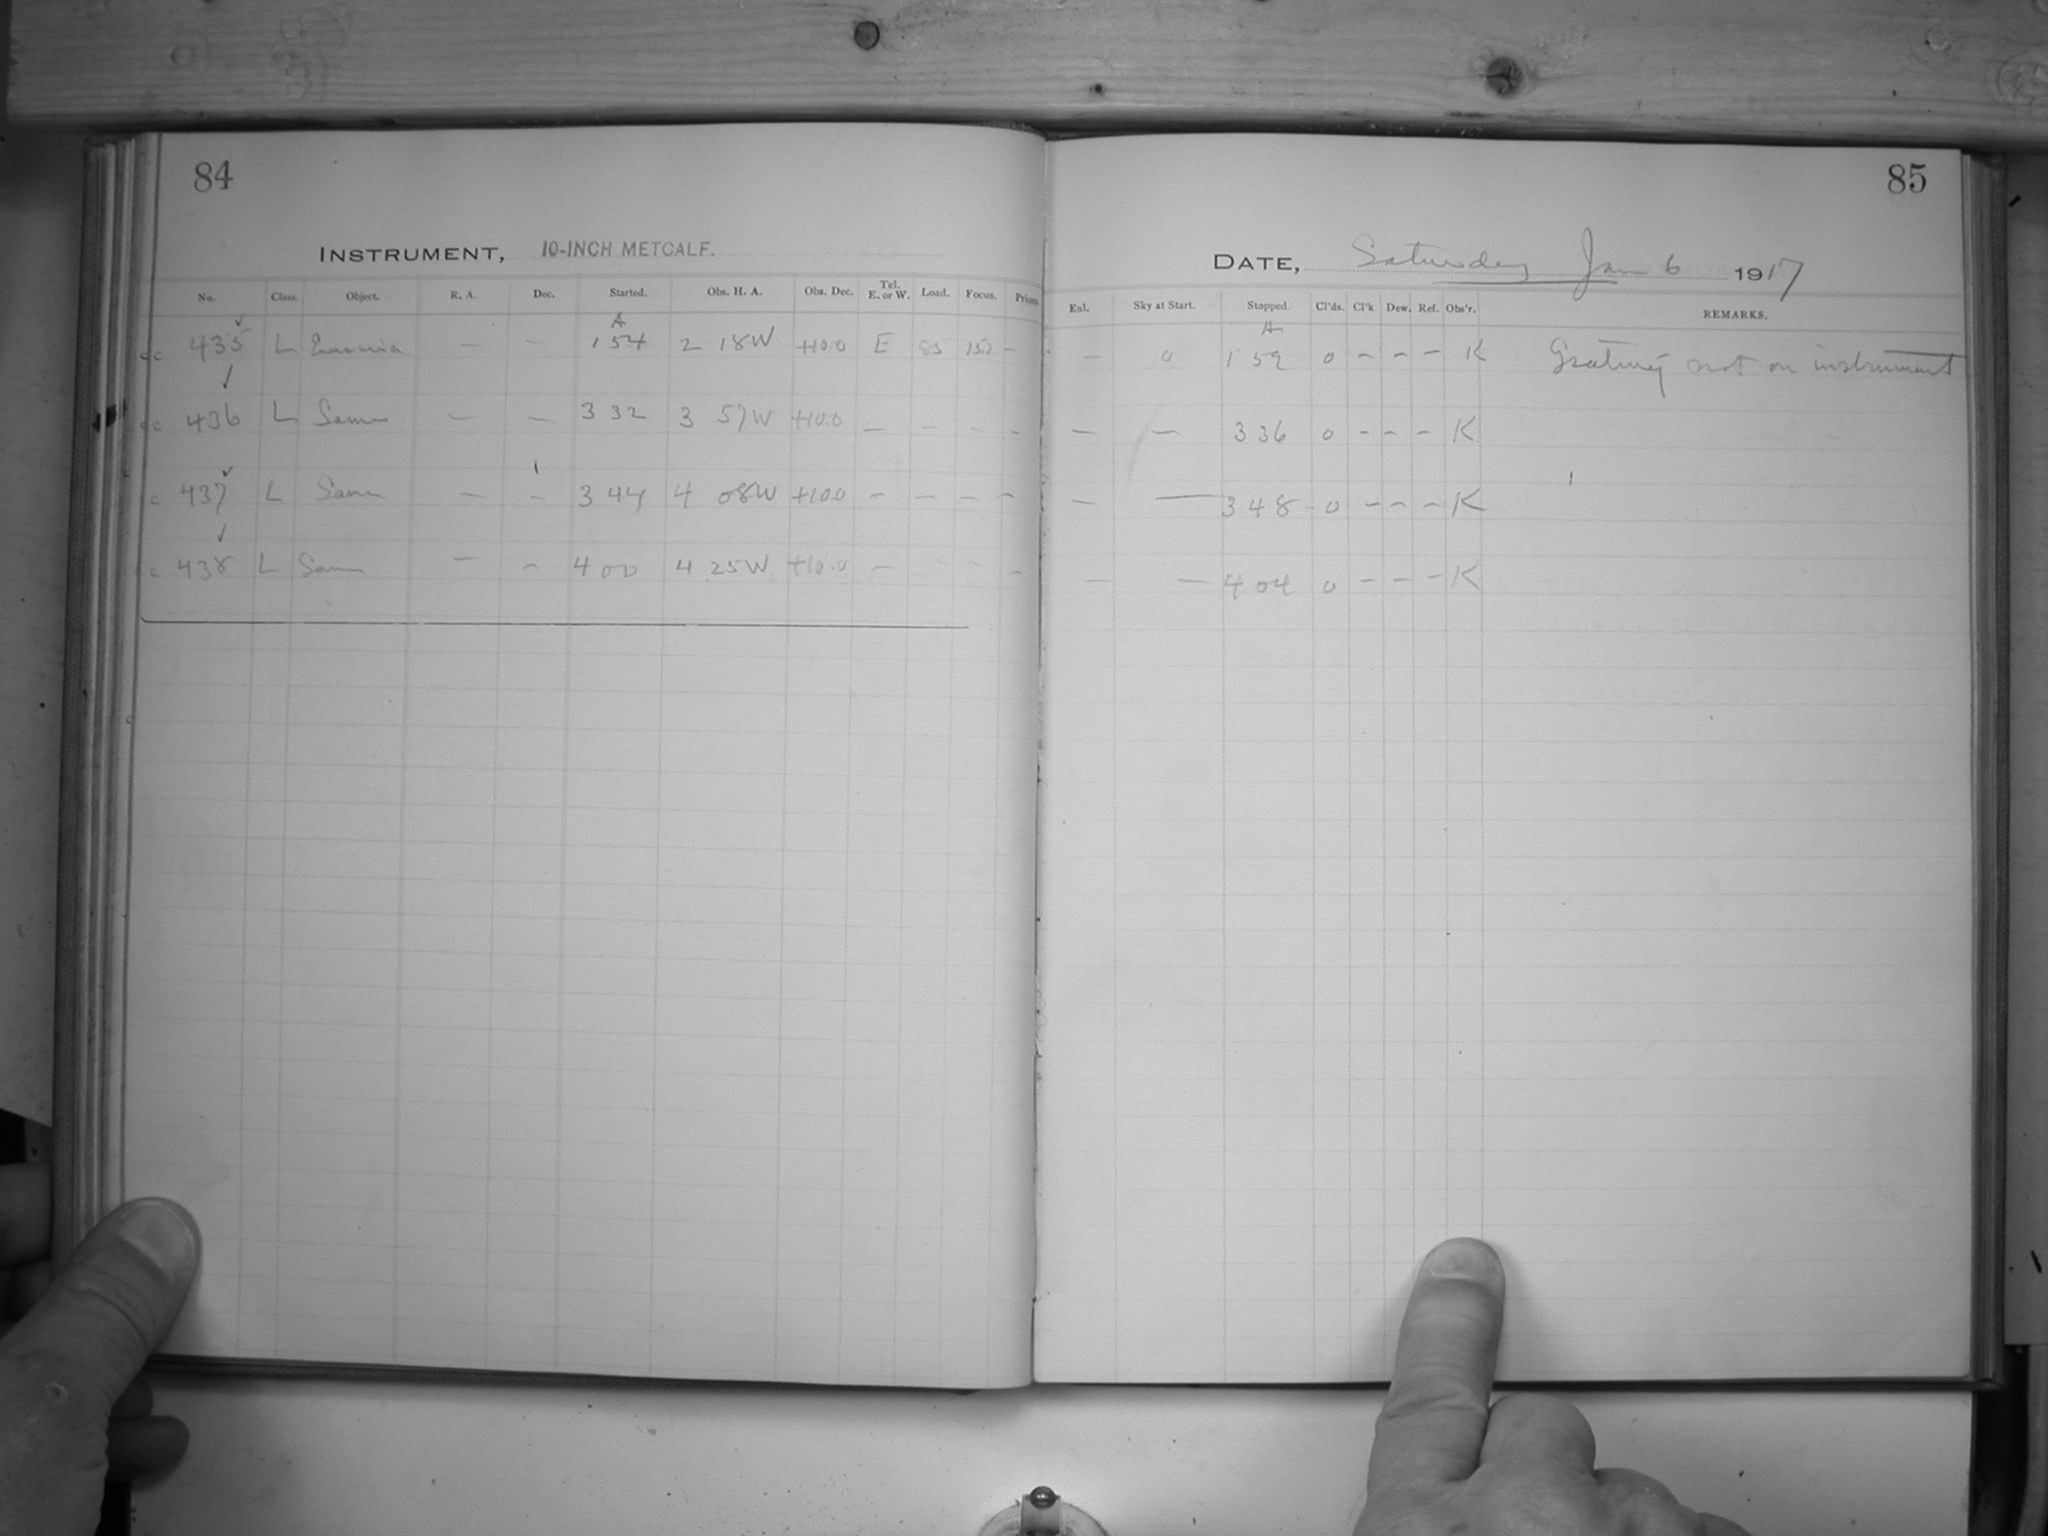 84
INSTRUMENT, 10-INCH METCALF.
No. Class. Object. R. A. Dec. Started. Obs. H. A. Obs. Dec. Tel. E. or W. Load. Focus. Prisms
A
435 L Eunomia — - 1 54 2 18W +10.0 E 85 15.2 -
436 L Same — — 3 32 3 57W +10.0 — - - -
437 L Same — - 3 44 4 08W +10.0 - - - -
438 L Same — - 4 00 4 25W +10.0 - - - -
85
DATE, Saturday Jan 6 1917
Enl. Sky at Start. Stopped. Cl'ds. Cl'k Dew. Ref. Obs'r. REMARKS.
A
- 0 1 59 0 - - - K Grating not on instrument
- — 3 36 0 - - - K
- — 3 48 - 0 - - - K
- — 4 04 0 - - - K